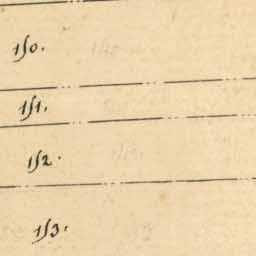 150.
151.
152.
153.